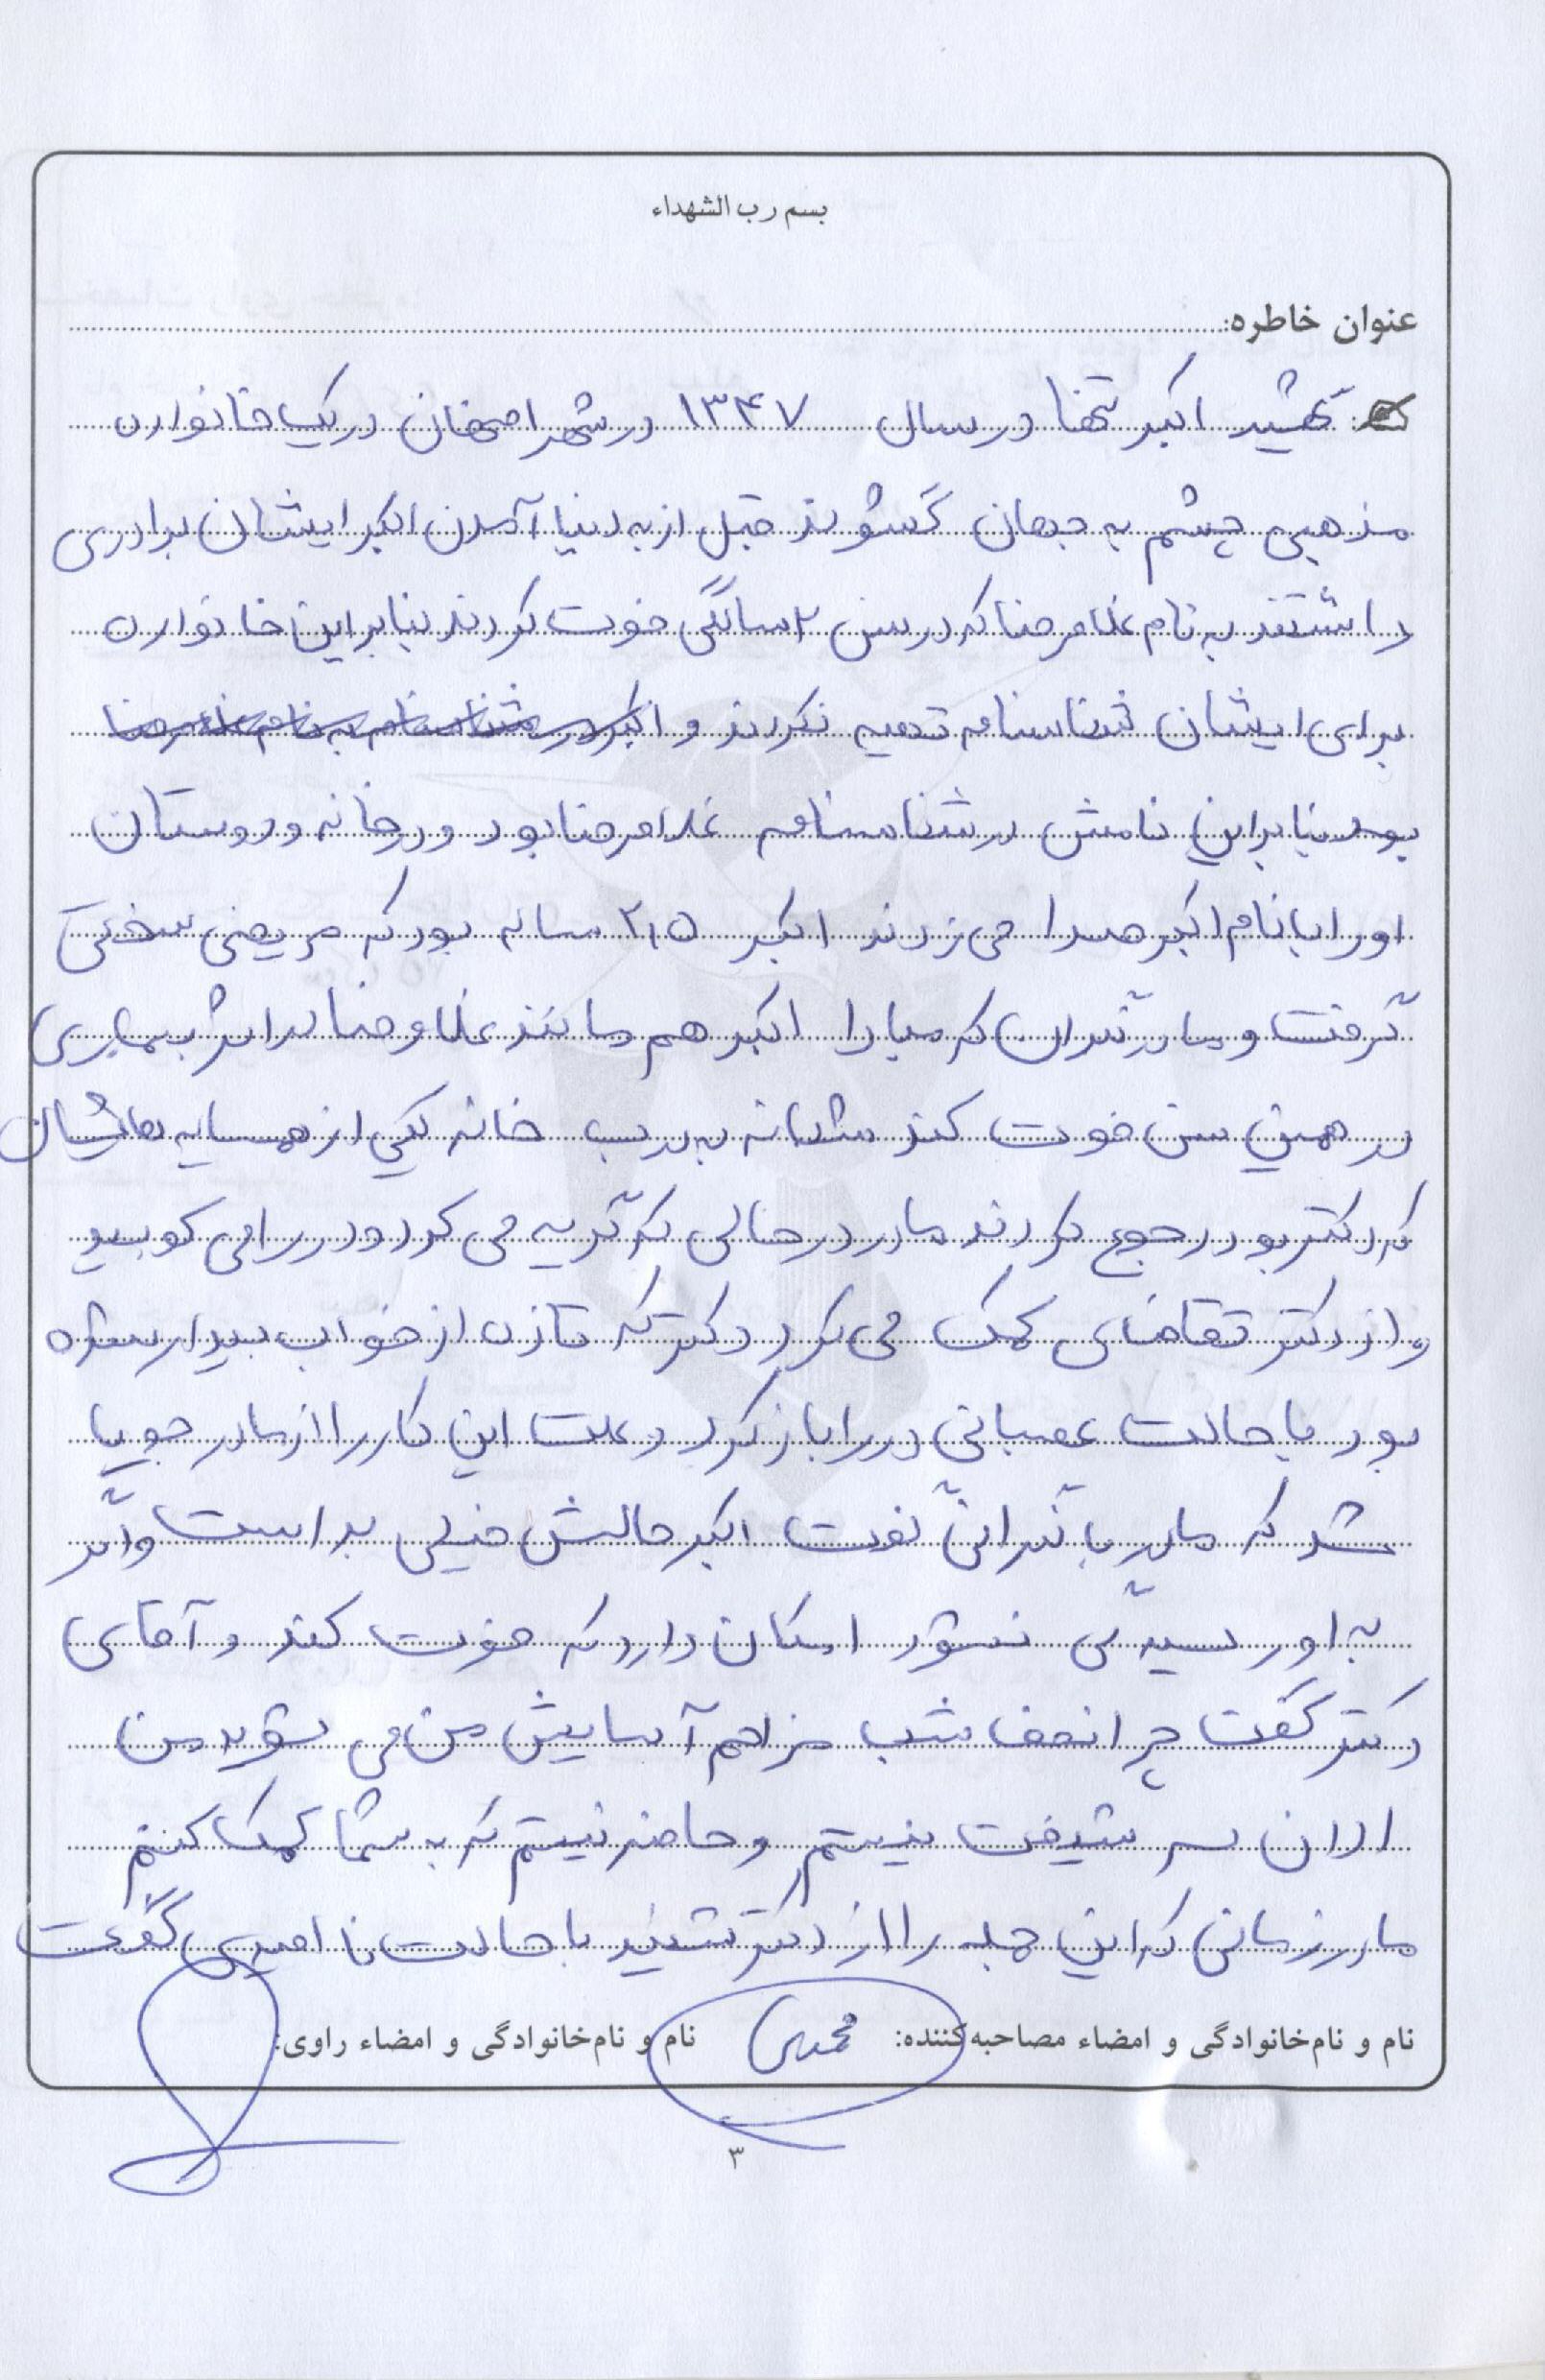 بسم رب الشهداء
عنوان خاطره:
شهید اکبر تنها در سال ۱۳۴۷ در شهر اصفهان در یک خانواده
مذهبی چشم به جهان گشودند قبل از به دنیا آمدن اکبر ایشان برادری
داشتند به نام غلامرضا که در سن ۲ سالگی فوت کردند بنابراین خانواده
برای ایشان شناسنامه تهیه نکردند و اکبر در شناسنامه به نام غلامرضا
بود بنابراین نامش در شناسنامه غلامرضا بود و در خانه و دوستان
او را با نام اکبر صدا می زدند اکبر ۲،۵ ساله بود که مریضی سختی
گرفت و مادر نگران که مبادا اکبر هم مانند غلامرضا بر اثر بیماری
در همین سن فوت کند شبانه به درب خانه یکی از همسایه هایشان
که دکتر بود رجوع کردند مادر در حالی که گریه می کرد و در را می کوبید
و از دکتر تقاضای کمک می کرد دکتر که تازه از خواب بیدار شده
بود با حالت عصبانی در را باز کرد و علت این کار را از مادر جویا
شد که مادر با نگرانی گفت اکبر حالش خیلی بد است و اگر
به او رسیدگی نشود امکان دارد که فوت کند و آقای
دکتر گفت چرا نصف شب مزاحم آسایش من می شوید من
الان سر شیفت نیستم و حاضر نیستم که به شما کمک کنم
مادر زمانی که این جمله را از دکتر شنید با حالت نا امیدی گفت
نام و نام خانوادگی و امضاء مصاحبه کننده: محمدی نام و نام خانوادگی و امضاء راوی:
۳